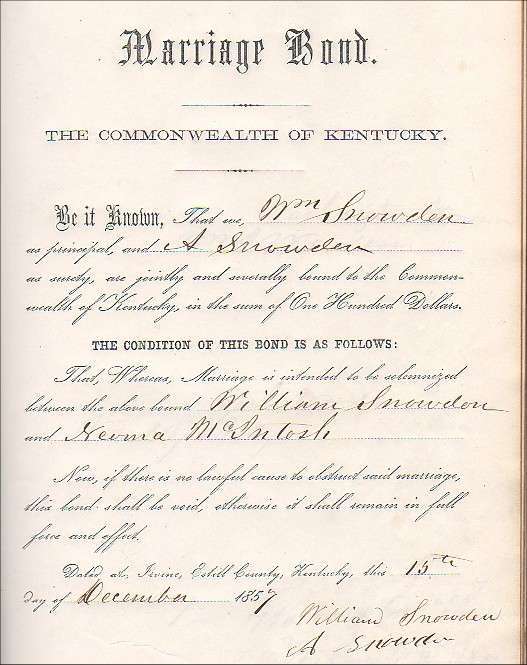 Marriage Bond.
THE COMMONWEALTH OF KENTUCKY.
Be it Known, That we, Wm Snowden
as principal, and A Snowden
as surety, are jointly and severally bound to the Common-
wealth of Kentucky, in the sum of One Hundred Dollars.
THE CONDITION OF THIS BOND IS AS FOLLOWS:
That, Whereas, Marriage is intended to be solemnized
between the above bound William Snowdon
and Neoma McIntosh
Now, if there is no lawful cause to obstruct said marriage,
this bond shall be void, otherwise it shall remain in full
force and effect.
Dated at Irvine, Estill County, Kentucky, this 15th
day of December 1857
William Snowden
A Snowden